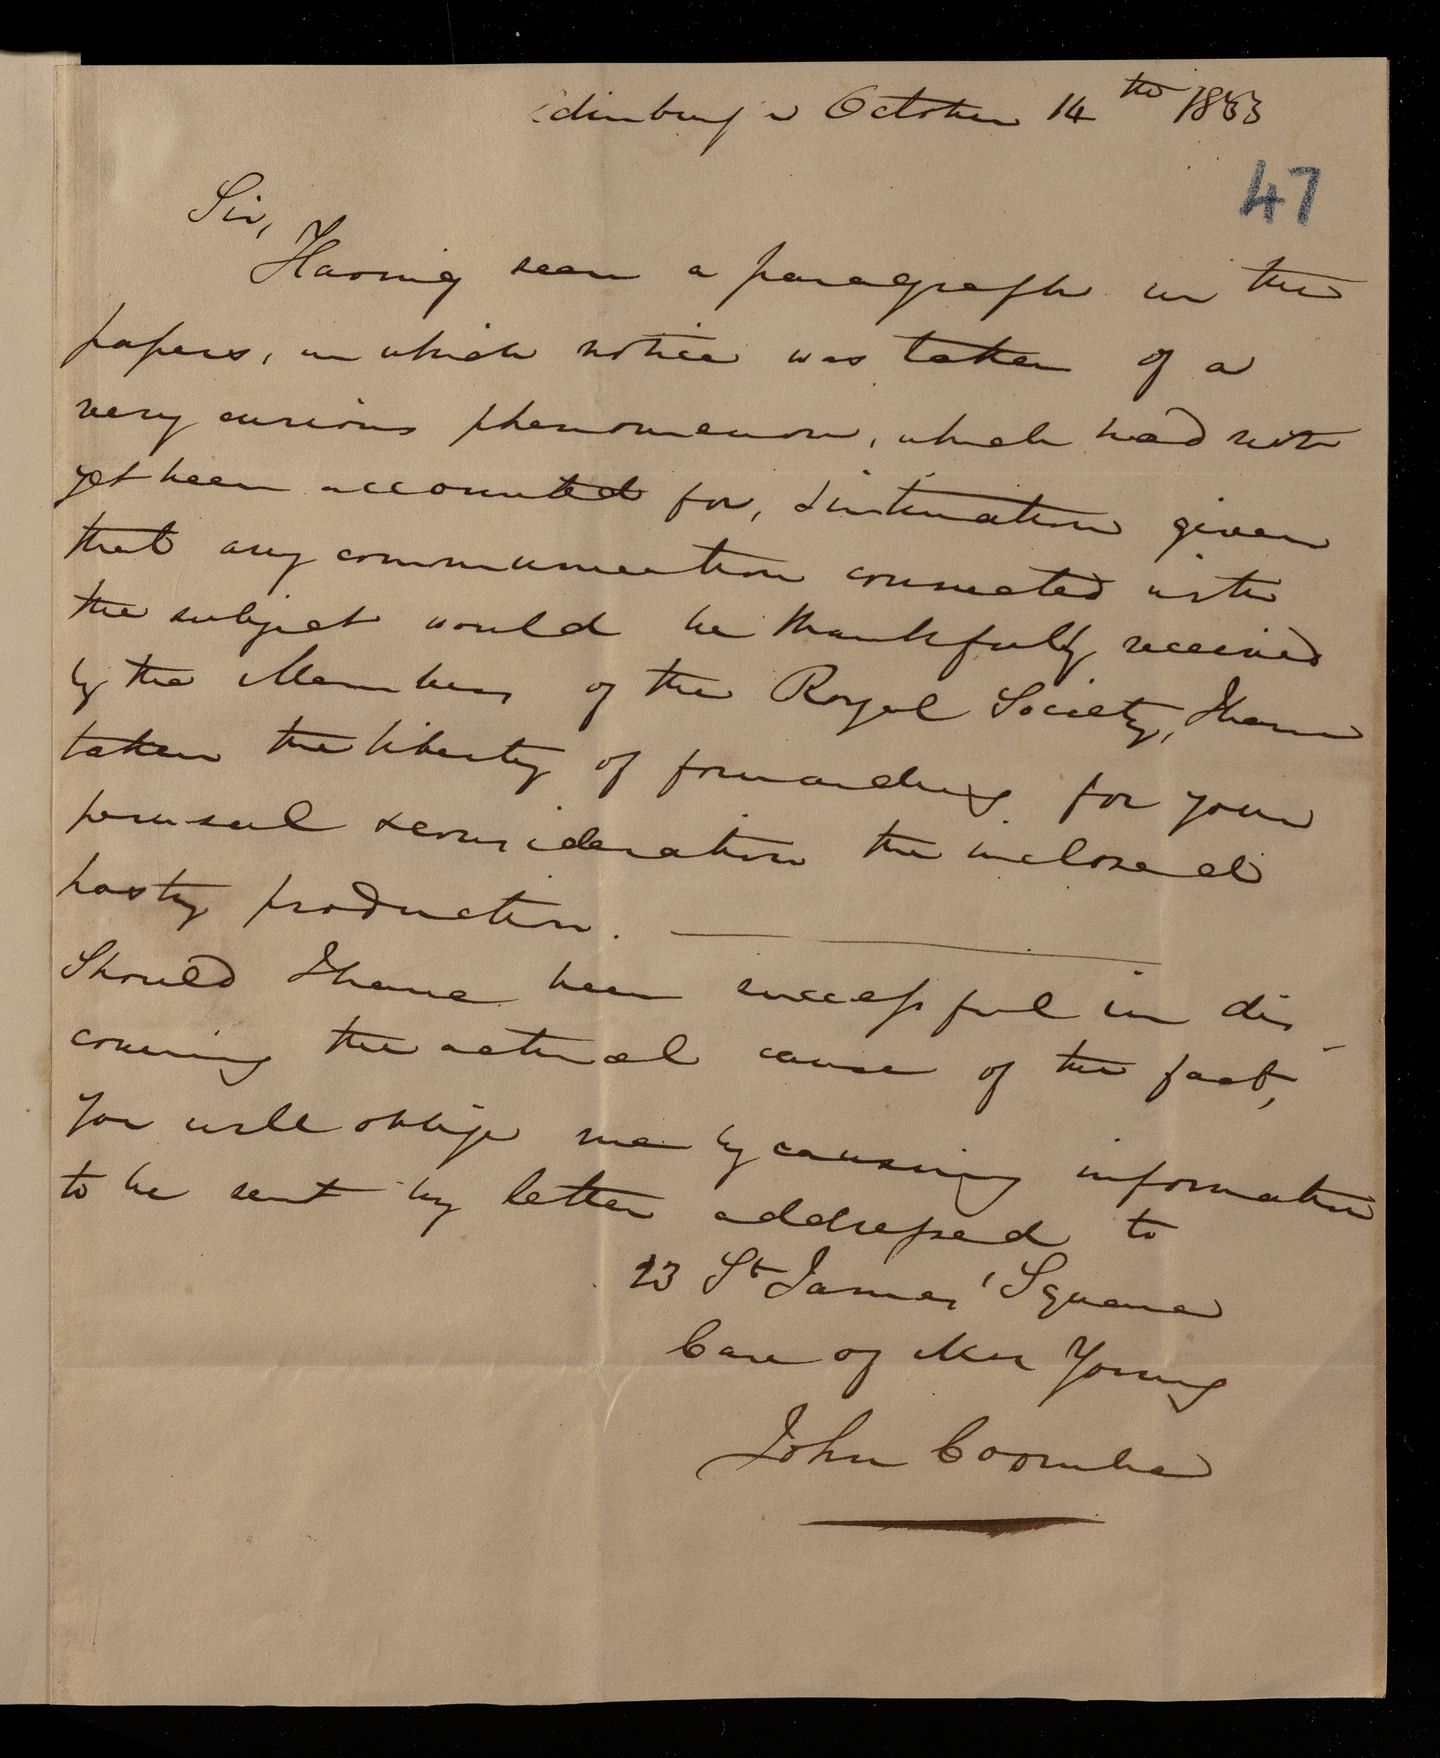 Edinburgh October 14th 1833
47
Sir,
Having seen a paragraph in the
papers, in which notice was taken of a
very curious phenomenon, which had not
yet been accounted for, & intimation given
that any communication connected with
the subject would be thankfully received
by the Members of the Royal Society, I have
taken the liberty of forwarding for your
perusal & consideration the inclosed
hasty production.
Should I have been successful in dis-
covering the actual cause of the fact,
you will oblige me by causing information
to be sent by letter addressed to
23 St James' Square
Care of Mrs Young
John Coombe